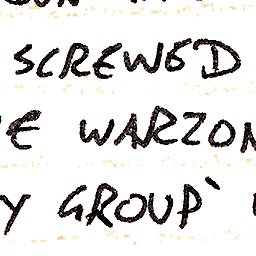 SCREWED
E WARZON
Y GROUP'